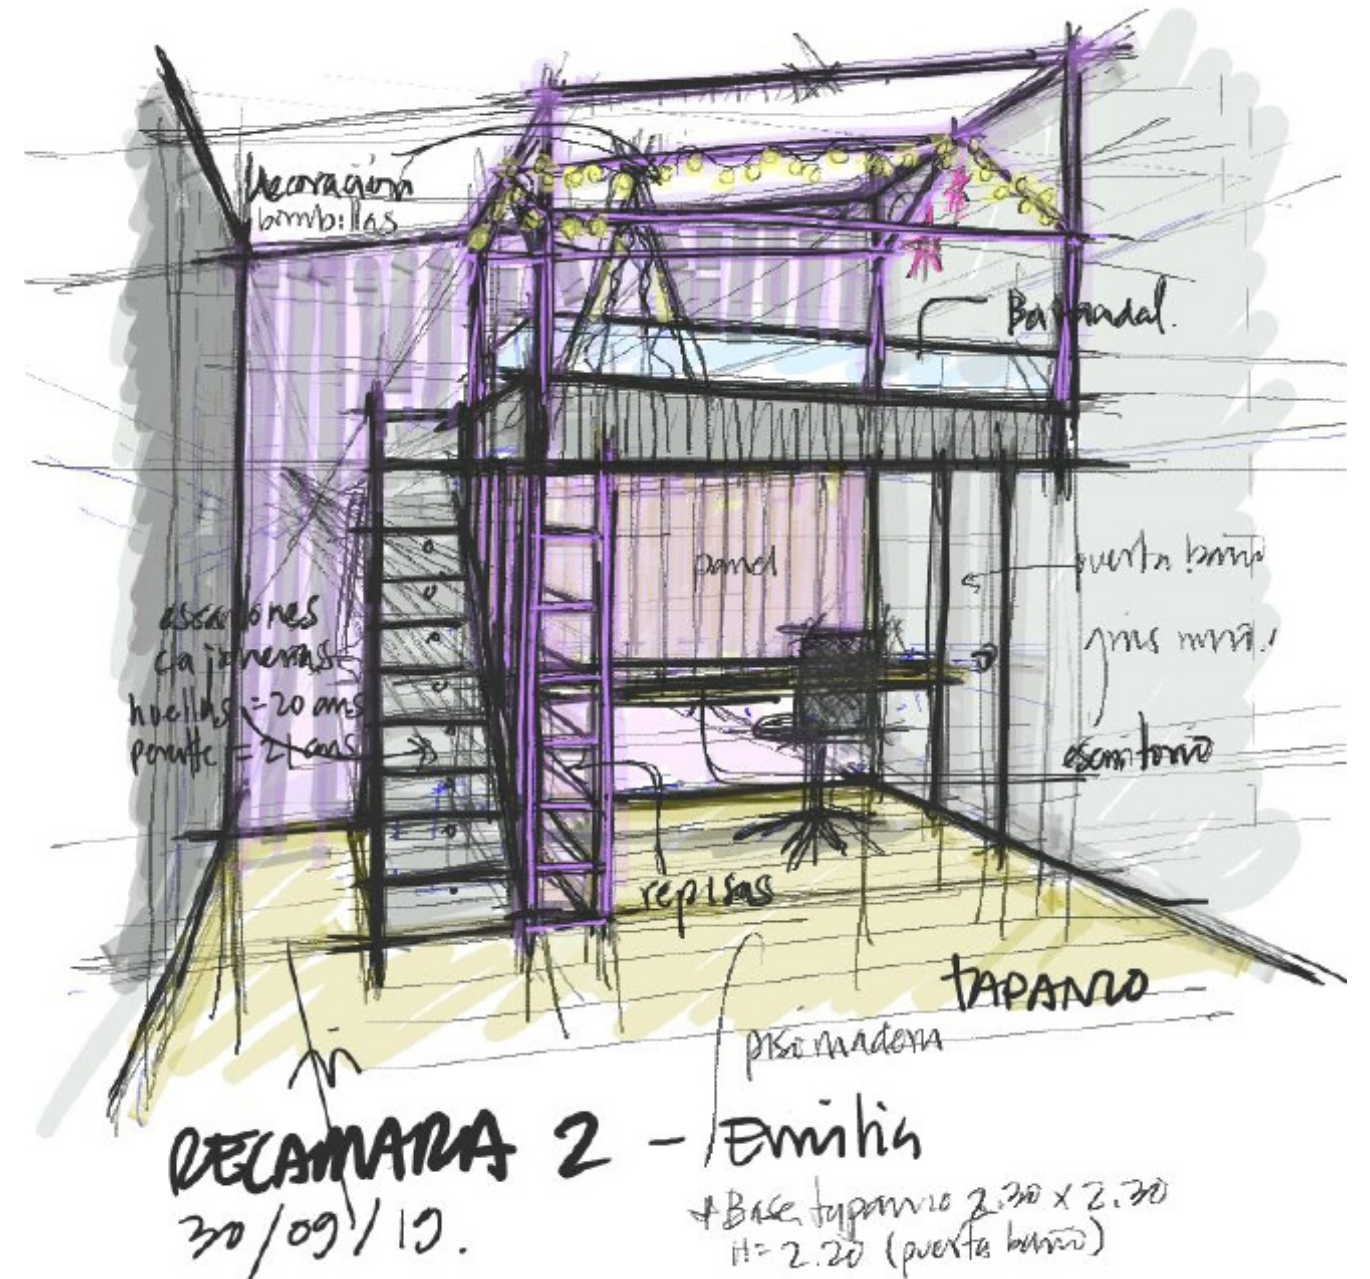 decoración
bombillas
Barandal.
panel
puerta baño
escalones
cajoneras
huellas = 20 cms
peralte = 21 cms
gris
escritorio
repisas
TAPANCO
piso madera
RECAMARA 2 - Emilia
30/09/19.
*Base tapanco 2.30 x 2.30
H= 2.20 (puerta baño)